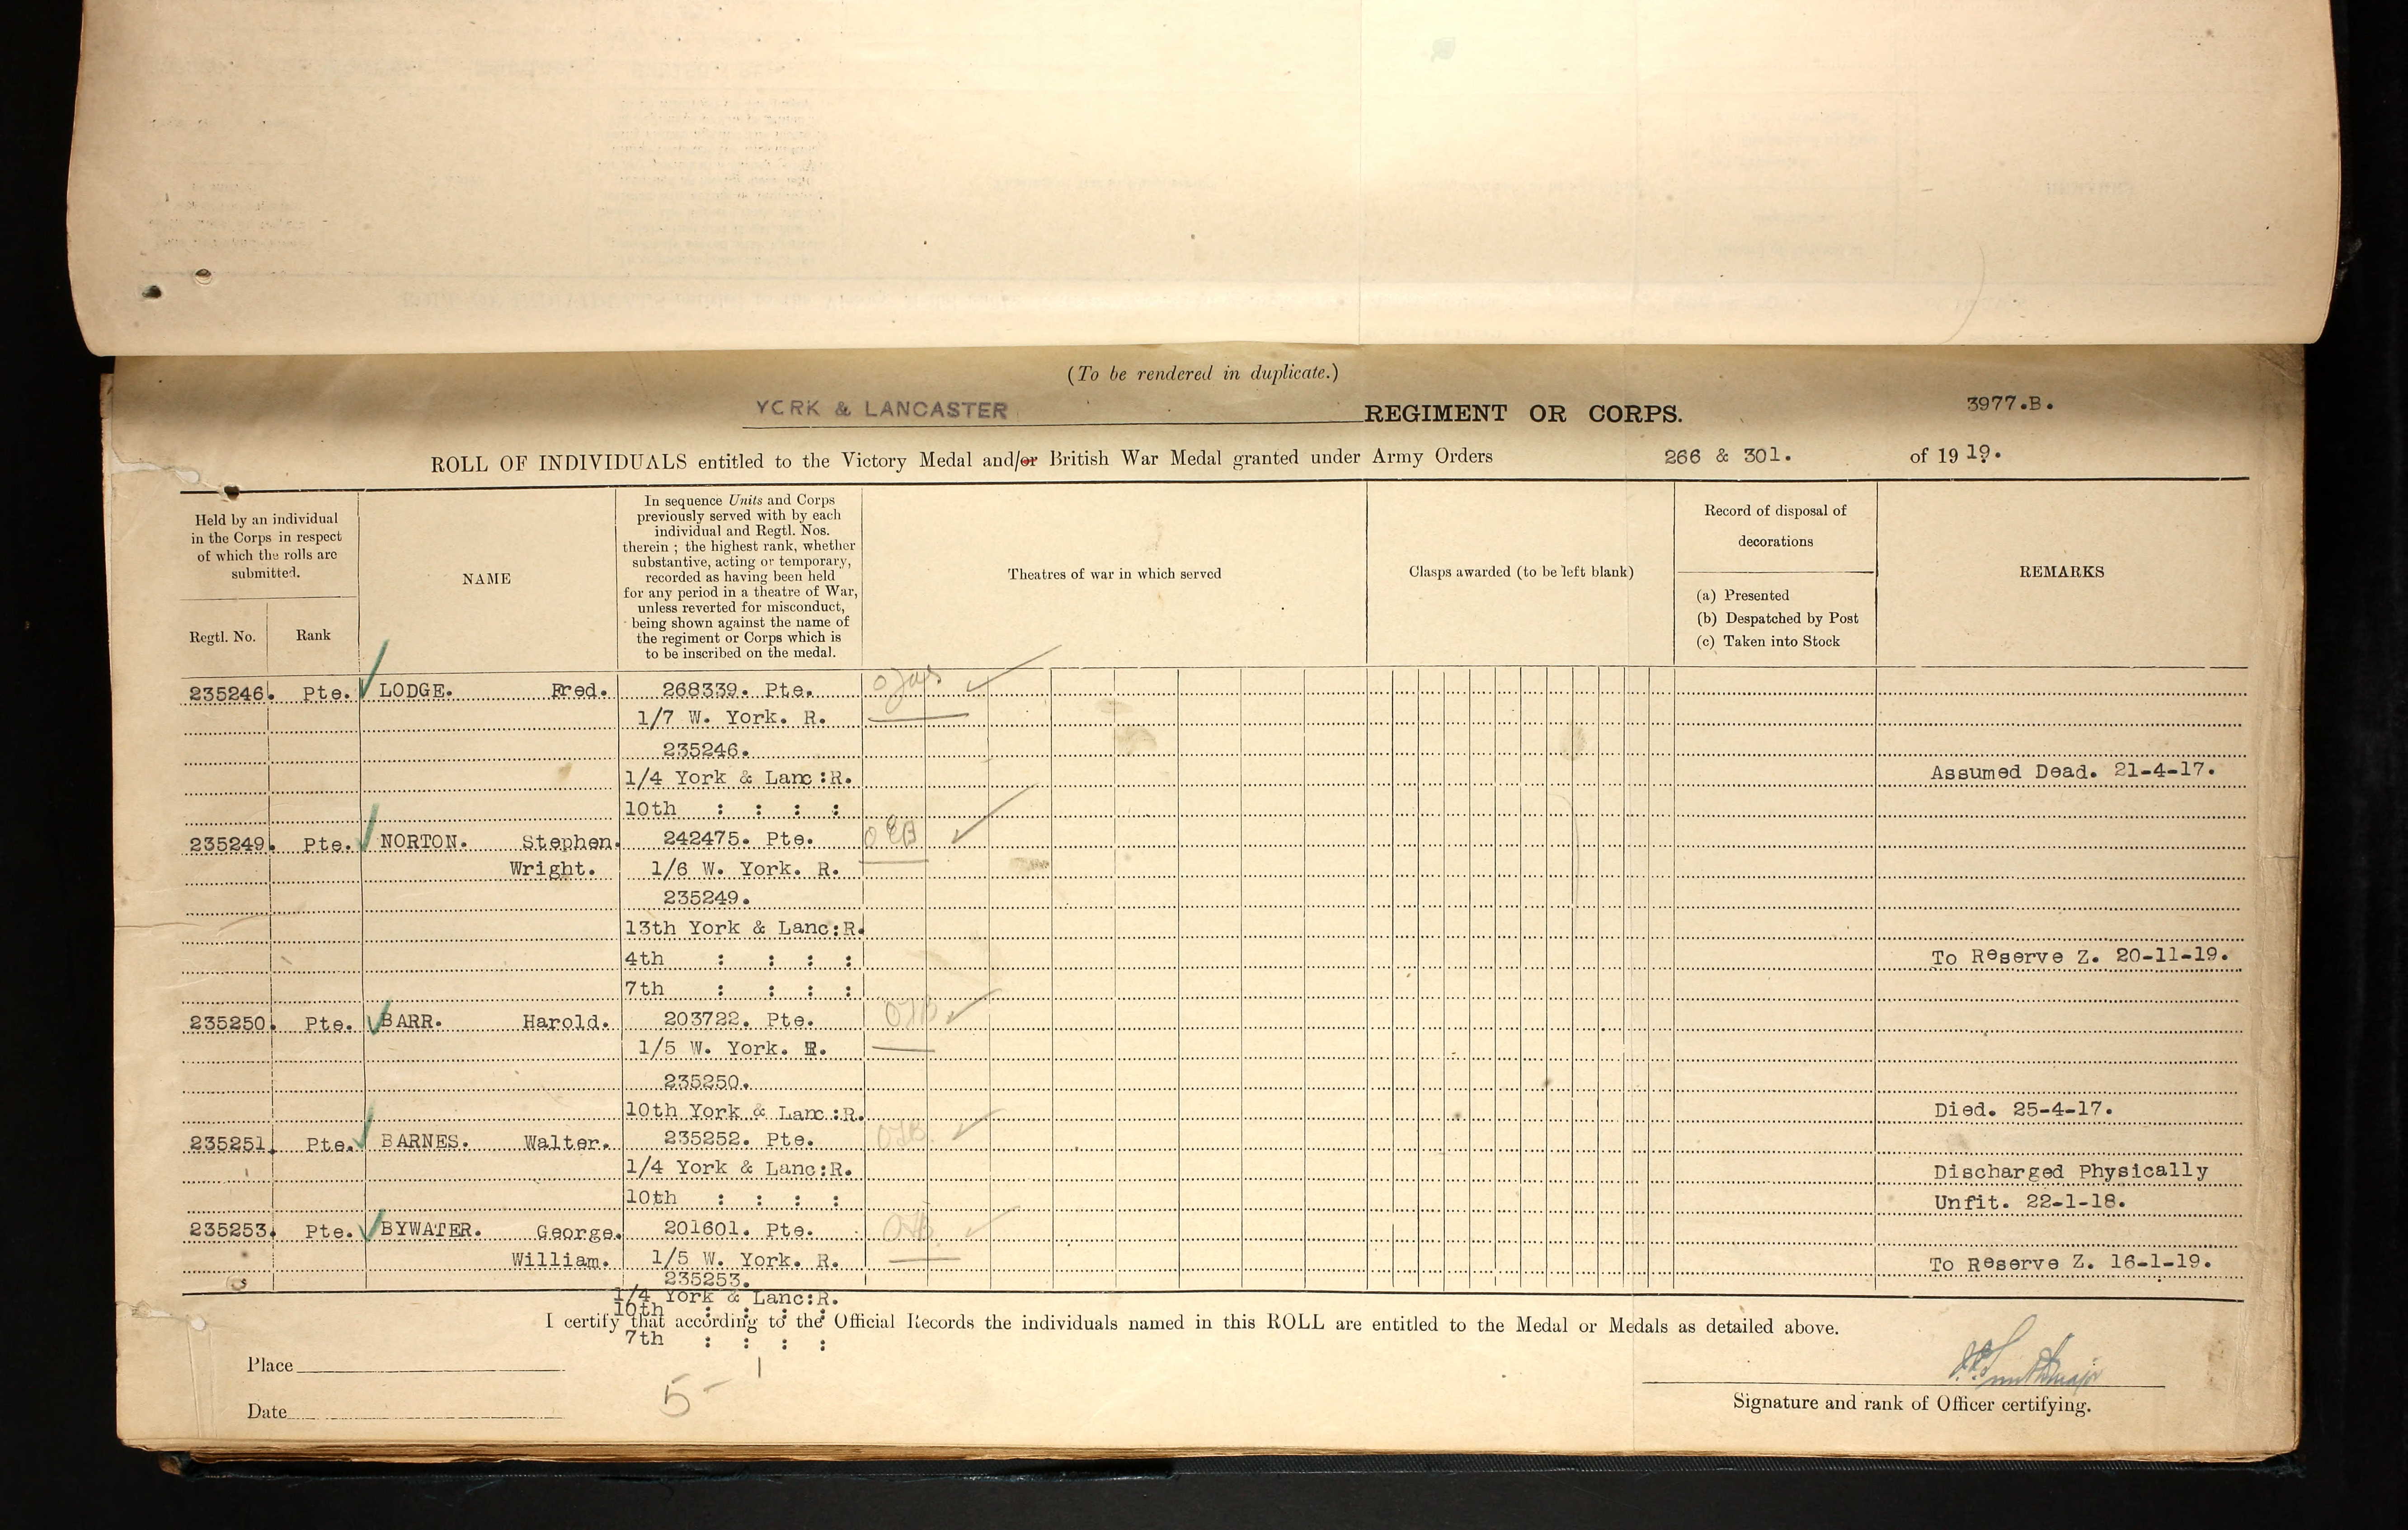 (To be rendered in duplicate.)
YORK & LANCASTER REGIMENT OR CORPS. 3977.B.
ROLL OF INDIVIDUALS entitled to the Victory Medal and/or British War Medal granted under Army Orders 266 & 301. of 1919.
Held by an individual in the Corps in respect of which the rolls are submitted.
Regtl. No.
Rank
NAME
In sequence Units and Corps
previously served with by each
individual and Regtl. Nos.
therein ; the highest rank, whether
substantive, acting or temporary,
recorded as having been held
for any period in a theatre of War,
unless reverted for misconduct,
being shown against the name of
the regiment or Corps which is
to be inscribed on the medal.
Theatres of war in which served
Clasps awarded (to be left blank)
Record of disposal of
decorations
(a) Presented
(b) Despatched by Post
(c) Taken into Stock
REMARKS
235246. Pte. LODGE. Fred. 268339. Pte.
1/7 W. York. R.
235246.
1/4 York & Lanc:R. Assumed Dead. 21-4-17.
10th : : : :
235249. Pte. NORTON. Stephen. 242475. Pte.
Wright. 1/6 W. York. R.
235249.
13th York & Lanc:R.
4th : : : : To Reserve Z. 20-11-19.
7th : : : :
235250. Pte. BARR. Harold. 203722. Pte.
1/5 W. York. R.
235250.
10th York & Lanc:R. Died. 25-4-17.
235251. Pte. BARNES. Walter. 235252. Pte.
1/4 York & Lanc:R. Discharged Physically
10th : : : : Unfit. 22-1-18.
235253. Pte. BYWATER. George. 201601. Pte.
William. 1/5 W. York. R. To Reserve Z. 16-1-19.
235253.
1/4 York & Lanc:R.
10th : : : :
I certify that according to the Official Records the individuals named in this ROLL are entitled to the Medal or Medals as detailed above.
7th : : : :
Place
5
Date
Signature and rank of Officer certifying.